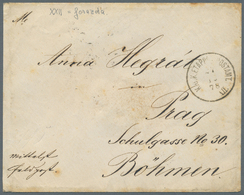 XVII - Gorazda
M.
Anna Hegrát
Prag
Schulgasse No 30.
Böhmen
mittelst
Feldpost